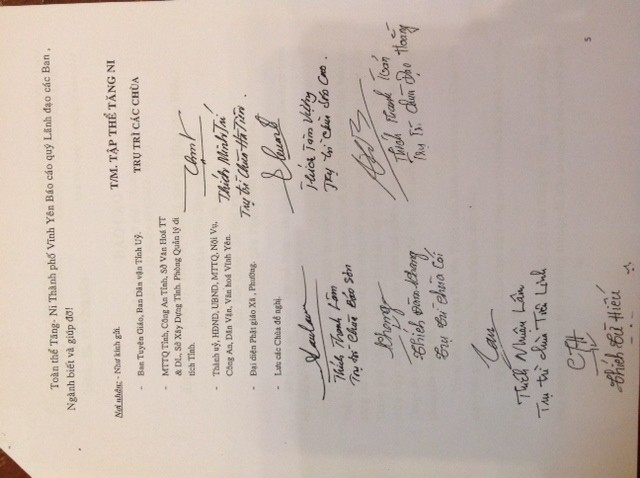 Toàn thể Tăng- Ni Thành phố Vĩnh Yên Báo cáo quý Lãnh đạo các Ban ,
Ngành biết và giúp đỡ!
Nơi nhận: - Như kính gửi.
- Ban Tuyên Giáo, Ban Dân vận Tỉnh Uỷ.
- MTTQ Tỉnh, Công An Tỉnh, Sở Văn Hoá TT
& DL, Sở Xây Dựng Tỉnh. Phòng Quản lý di
tích Tỉnh.
- Thành uỷ, HĐND, UBND, MTTQ, Nội Vụ,
Công An, Dân Vận, Văn hoá Vĩnh Yên.
- Đại diện Phật giáo Xã , Phường.
- Lưu các Chùa đề nghị.
T/M. TẬP THỂ TĂNG NI
TRỤ TRÌ CÁC CHÙA
Thích Minh Trí
Trụ trì Chùa Hà Tiên.
Thích Tâm Vượng
Trụ trì Chùa
Thích Thanh
Trụ trì chùa Đạo Hoằng
Thích Thanh Lâm
Trụ trì Chùa Bảo Sơn
Khang
Thích Đàm Khang
Trụ trì chùa Cói
Lan
Thích Nhuân Lân
Trụ trì chùa Tiên Linh
Thích Từ Hiếu
5